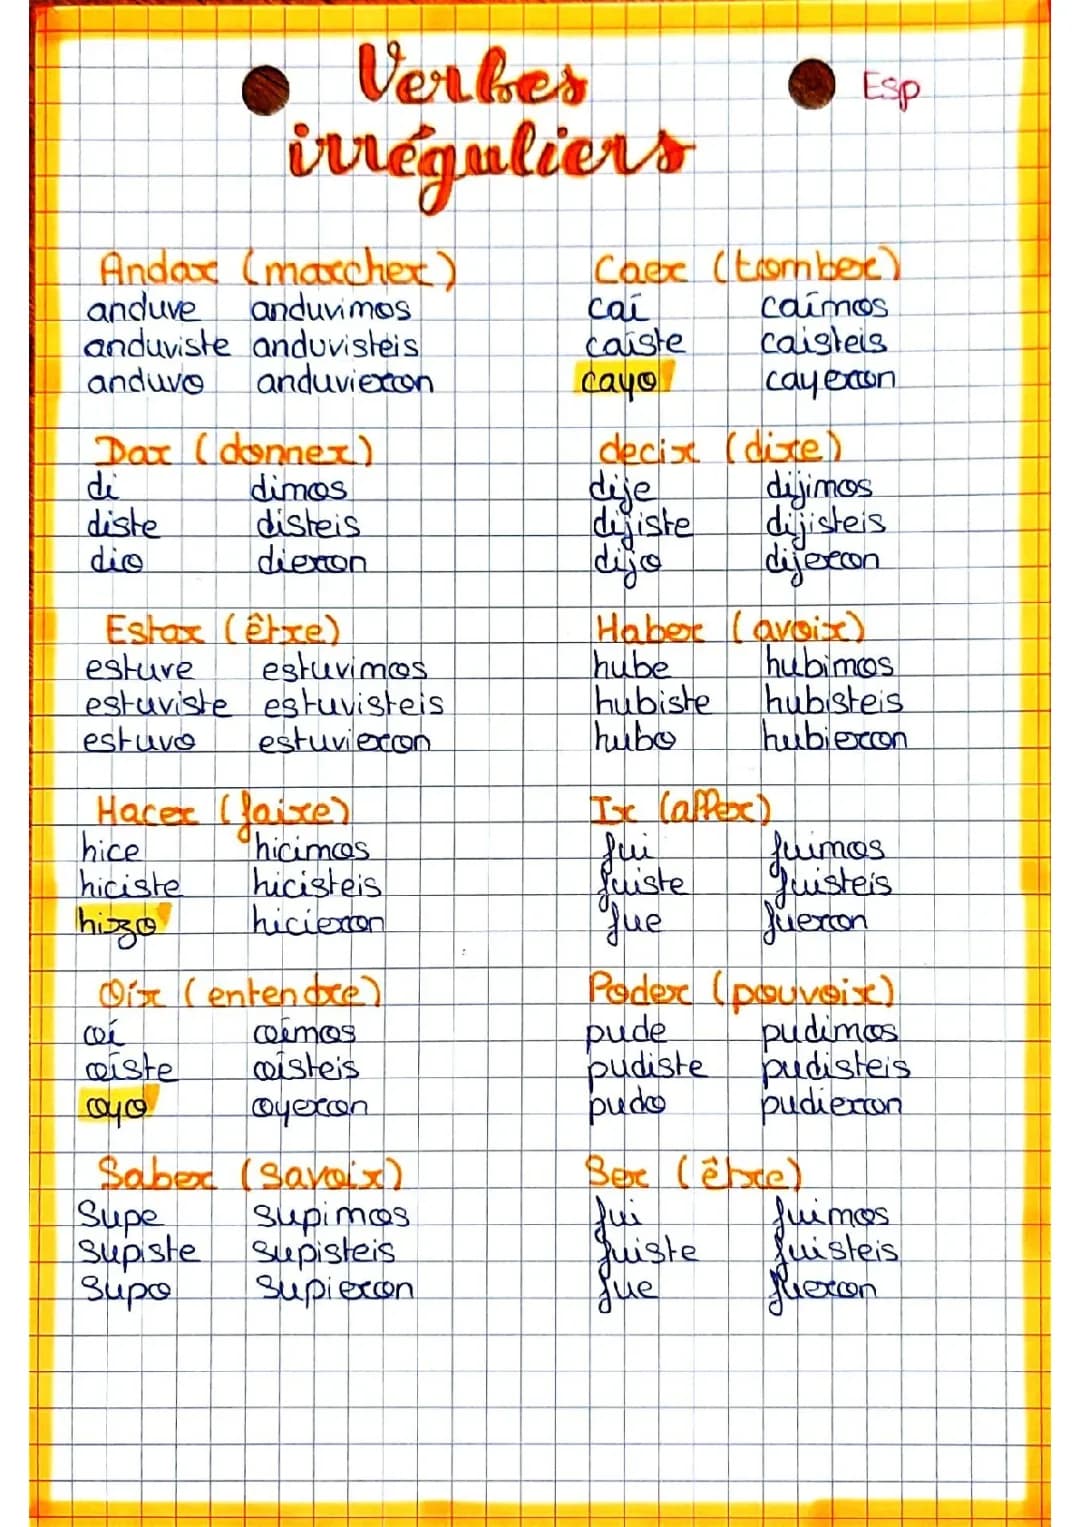 Verbes
irréguliers
Esp
Andar (marcher)
anduve anduvimos
anduviste anduvisteis
anduvo anduvieron
Caer (tomber)
caí caímos
caíste caisteis
cayo cayeron
Dar (donner)
di dimos
diste disteis
dio dieron
decir (dire)
dije dijimos
dijiste dijisteis
dijo dijeron
Estar (être)
estuve estuvimos
estuviste estuvisteis
estuvo estuvieron
Haber (avoir)
hube hubimos
hubiste hubisteis
hubo hubieron
Hacer (faire)
hice hicimos
hiciste hicisteis
hizo hicieron
Ir (aller)
fui fuimos
fuiste fuisteis
fue fueron
Oír (entendre)
oí oímos
oíste oísteis
oyo oyeron
Poder (pouvoir)
pude pudimos
pudiste pudisteis
pudo pudieron
Saber (Savoir)
Supe supimos
Supiste supisteis
Supo Supieron
Ser (être)
fui fuimos
fuiste fuisteis
fue fueron